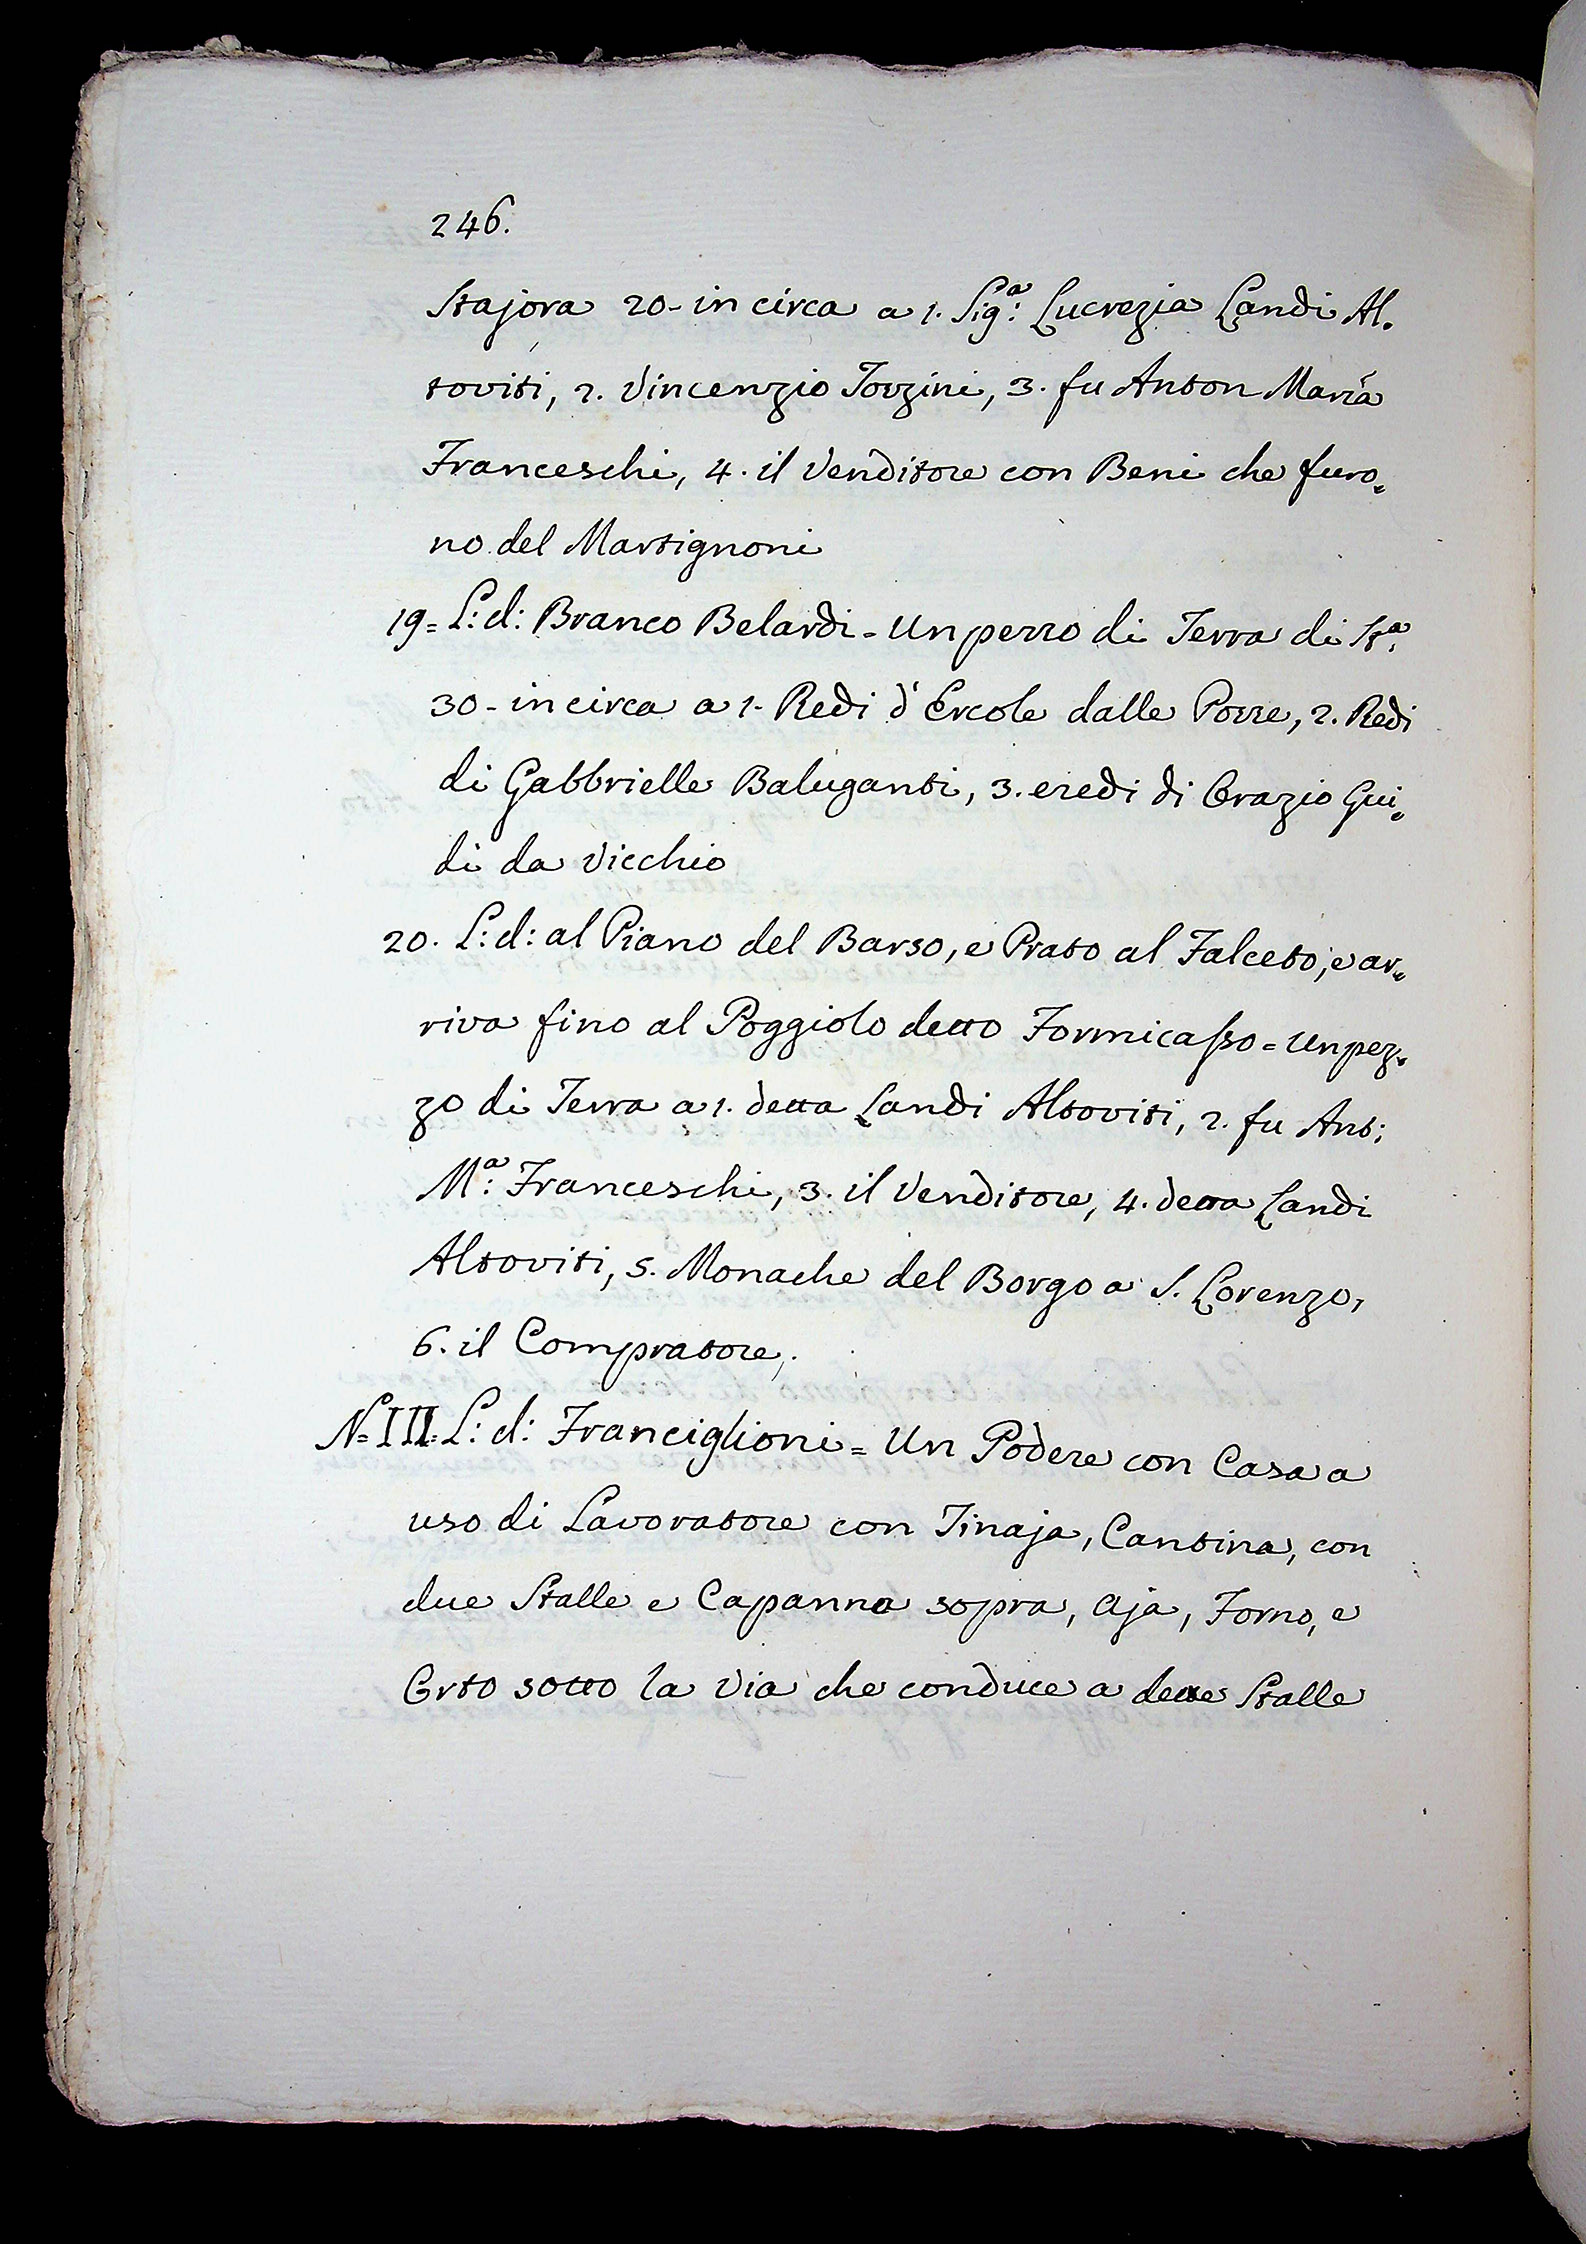 246.
Stajora 20- in circa a 1. Sig.ª Lucrezia Landi Al-
toviti, 2. Vincenzio Torzini, 3. fu Anton Maria
Franceschi, 4. il Venditore con Beni che furo-
no del Martignoni
19= L: d: Branco Belardi - Un pezzo di Terra di St.ª
30- in circa a 1- Redi d'Ercole dalle Pozze, 2. Redi
di Gabbrielle Baluganti, 3. eredi di Orazio Gui-
di da Vicchio
20. L: d: al Piano del Barso, e Prato al Falceto, e ar-
riva fino al Poggiolo detto Formicasso = Un pez-
zo di Terra a 1. detta Landi Altoviti, 2. fu Ant:
M.ª Franceschi, 3. il Venditore, 4. detta Landi
Altoviti, 5. Monache del Borgo a S. Lorenzo,
6. il Compratore,.
N= III= L: d: Franciglioni = Un Podere con Casa a
uso di Lavoratore con Tinaja, Cantina, con
due Stalle e Capanna sopra, Aja, Forno, e
Orto sotto la Via che conduce a dette Stalle